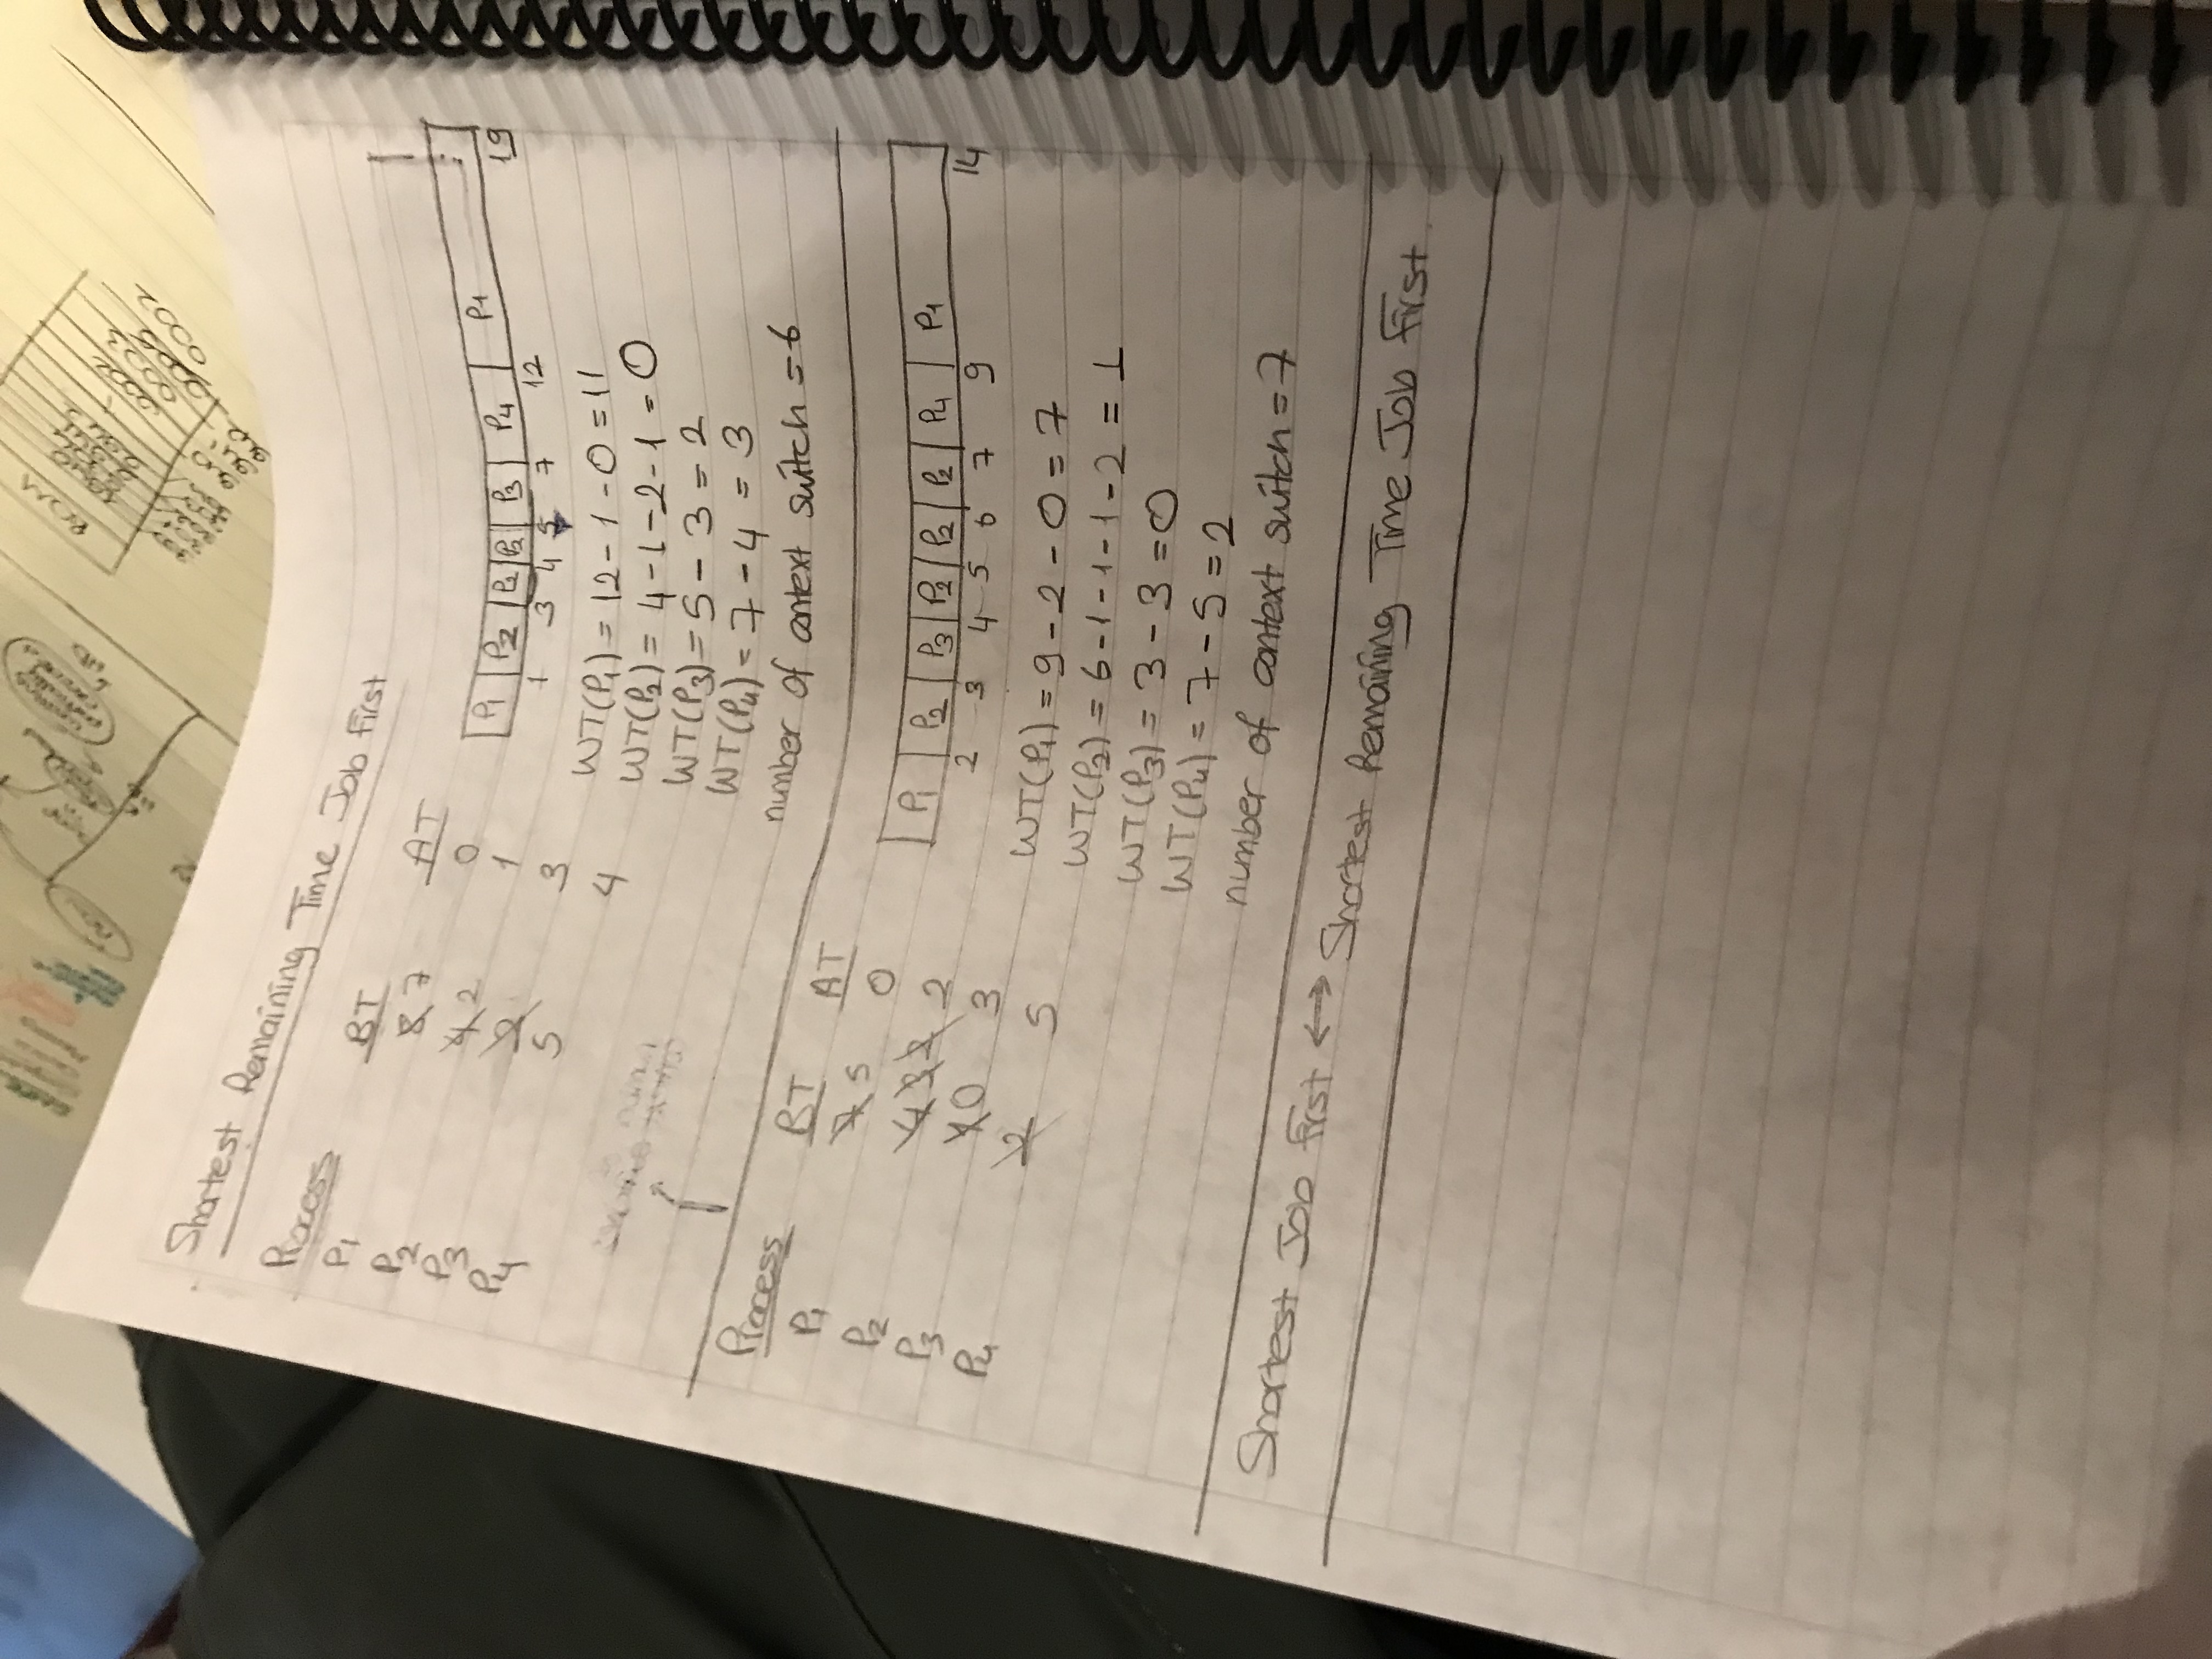 ROM
1940
2941
0002
0003
0005
0002
300
301
302
940
941
942
Shortest Remaining Time Job First
Process BT AT
P1 8 7 0
P2 4 2 1
P3 2 3
P4 5 4
P1 P2 P2 P2 P3 P4 P1
1 3 4 5 7 12 19
WT(P1) = 12 - 1 - 0 = 11
WT(P2) = 4 - 1 - 2 - 1 = 0
WT(P3) = 5 - 3 = 2
WT(P4) = 7 - 4 = 3
number of context switch = 6
Process BT AT
P1 7 5 0
P2 4 3 2 2
P3 1 0 3
P4 2 5
P1 P2 P3 P2 P2 P2 P4 P1
2 3 4 5 6 7 9 14
WT(P1) = 9 - 2 - 0 = 7
WT(P2) = 6 - 1 - 1 - 1 - 2 = 1
WT(P3) = 3 - 3 = 0
WT(P4) = 7 - 5 = 2
number of context switch = 7
Shortest Job First ↔ Shortest Remaining Time Job First